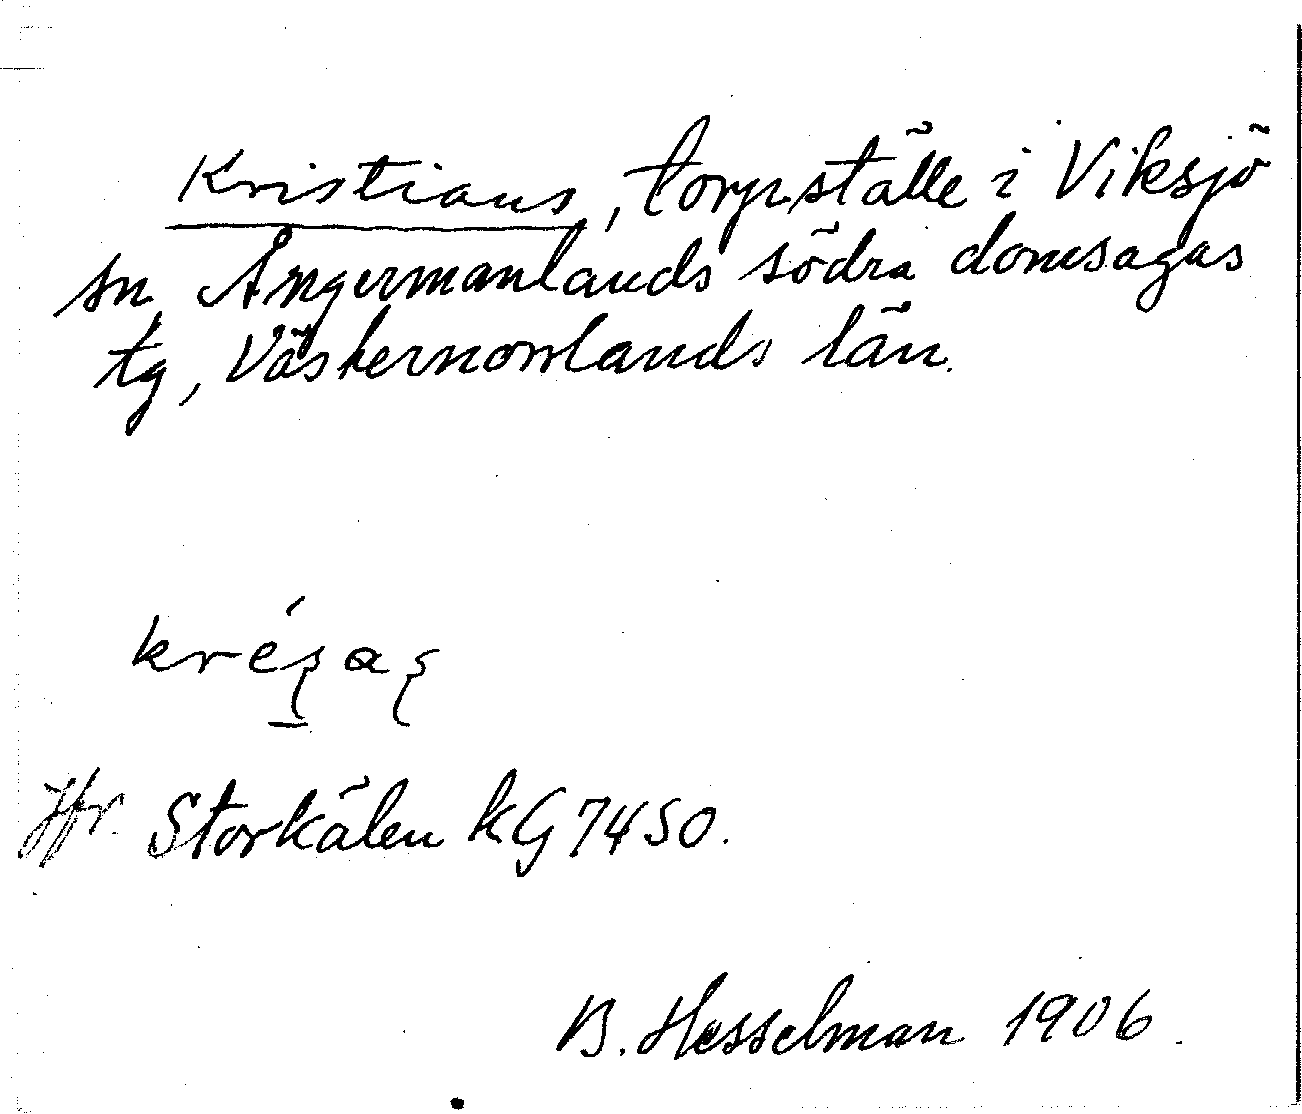 Kristians, torpställe i Viksjö
sn, Ångermanlands södra domsagas
tg, Västernorrlands län.
Jfr. Storkälen kG 7450.
B. Hesselman 1906.